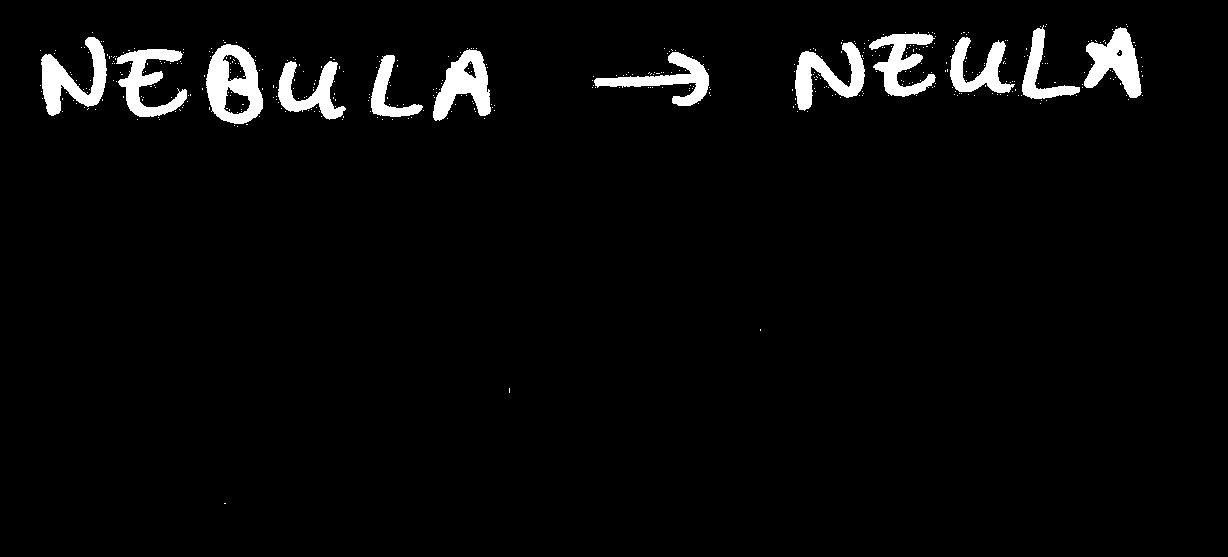 NEBULA → NEULA